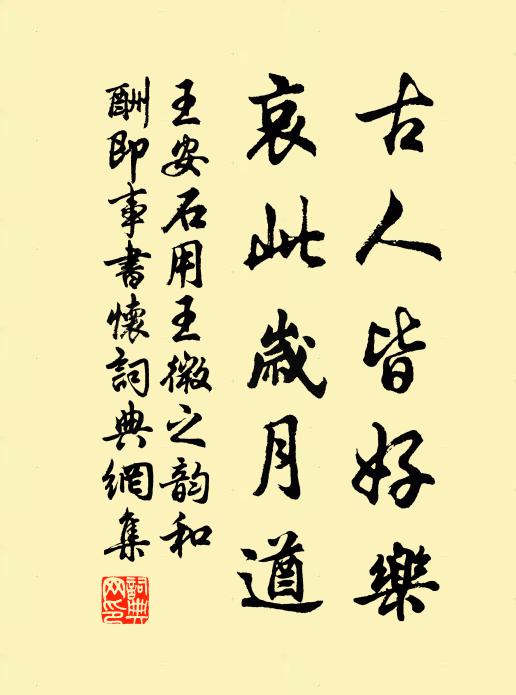 古人皆好樂
哀此歲月遒
王安石用王微之韵和
酬即事書懷詞典網集